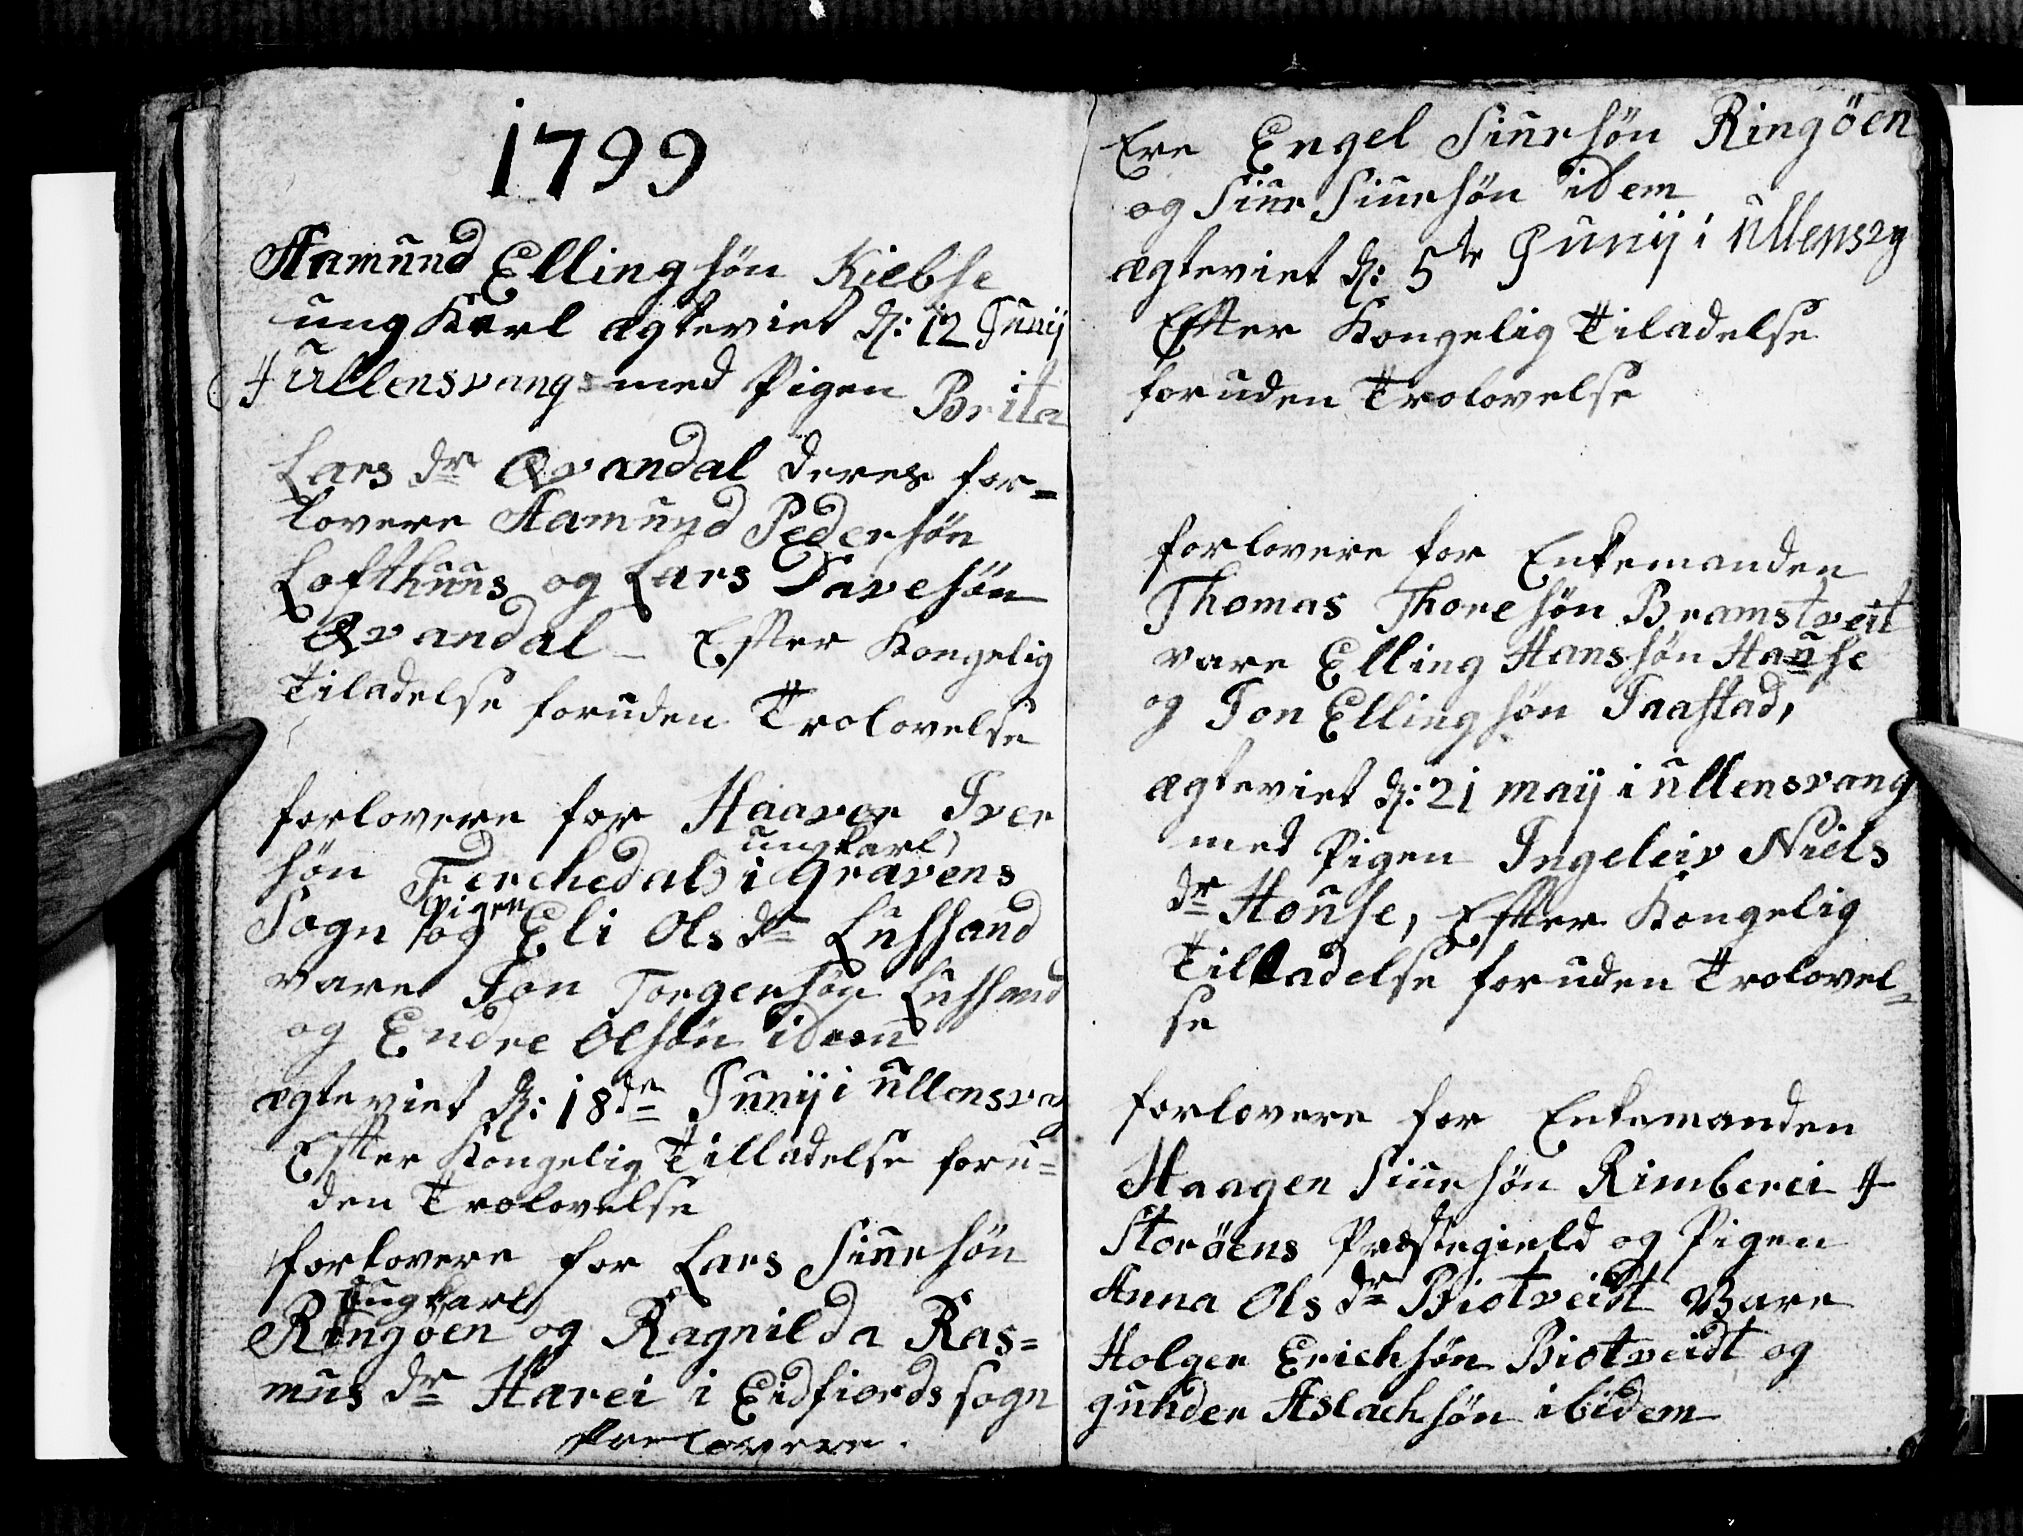 1799
Aamund Ellingsøn Kiebse
ung Karl ægteviet d: 12 Junij
J ullensvang med Pigen Brita
Lars dr Qvandal deres for=
lovere Aamund Pedersøn
Lofthuus og Lars Davesøn
Qvandal – Efter Kongelig
Tiladelse foruden Trolovelse
forlovere for Haavor Iver
ungkarl
søn Ferchedal i Gravens
pigen
Sogn og Eli Ols dr Lussand
vare Jon Torgersøn Lussand
og Endre Olsøn idem
ægteviet d: 18de Junij i ullensvag
Efter Kongelig Tilladelse foru=
den Trolovelse
forlovere for Lars Siursøn
ungkarl
Ringøen og Ragnilda Ras=
mus dr Harei i Eidfiords sogn
forlovere.
Ere Engel Siursøn Ringöen
og Siur Siursøn idem
ægteviet d: 5te Junij i ullensvg
Efter Kongelig Tiladelse
foruden Trolovelse
forlovere for Enkemanden
Thomas Thoresøn Bramstveit
vare Elling Hanssøn Hause
og Jon Ellingsøn Jaastad,
ægteviet d: 21 maij i ullensvang
med Pigen Ingeleiv Niels
dr House, Efter Kongelig
Tilladelse foruden Trolovel=
se
forlovere for Enkemanden
Haagen Siursøn Rimberei J
Storöens Præstegield og Pigen
Anna Ols dr Biotveidt Vare
Holger Erichsøn Biotveidt og
Guhder Aslachsøn ibidem